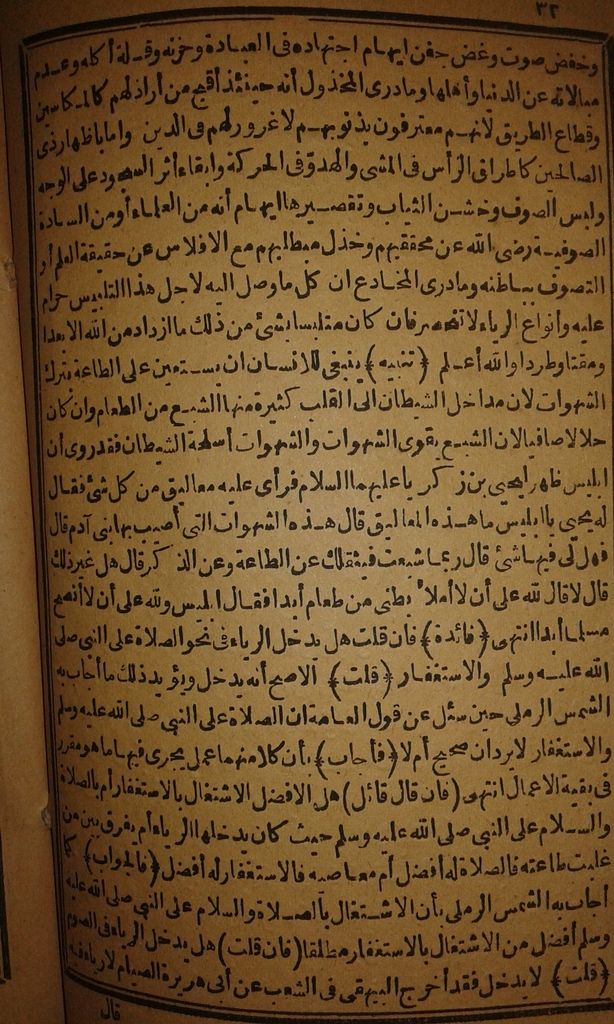 ٣٢
وخفض صوت وغض جفن ايهام اجتهاده فى العبادة وحزنه وقلة أكله وعدم
مبالاته عن الدنيا وأهلها ومادرى المخذول أنه حينئذ أقبح من أراذلهم كالمكاسين
وقطاع الطريق لانهم معترفون بذنوبهم لا غرور لهم فى الدين واما باظهار زى
الصالحين كاطراق الرأس فى المشى والهدوّ فى الحركة وابقاء أثر السجود على الوجه
ولبس الصوف وخشن الثياب وتقصيرها ايهام أنه من العلماء أو من السادة
الصوفية رضى الله عن محققيهم وخذل مبطليهم مع الافلاس عن حقيقة العلم أو
التصوف بباطنه ومادرى المخادع ان كل ما وصل اليه لاجل هذا التلبيس حرام
عليه وأنواع الرياء لا تنحصر فان كان متلبسا بشئ من ذلك ما ازداد من الله الا بعدا
ومقتا وطردا والله أعلم ﴿تنبيه﴾ ينبغى للانسان ان يستعين على الطاعة بترك
الشهوات لان مداخل الشيطان الى القلب كثيرة منها الشبع من الطعام وان كان
حلالا صافيا لان الشبع يقوى الشهوات والشهوات أسلحة الشيطان فقد روى أن
ابليس ظهر ليحيى بن زكريا عليهما السلام فرأى عليه معاليق من كل شئ فقال
له يحيى يا ابليس ما هذه المعاليق قال هذه الشهوات التى أصيب بها بنى آدم قال
فهل لى فيها شئ قال ربما شبعت فيثقلك عن الطاعة وعن الذكر قال هل غير ذلك
قال لا قال لله على أن لا أملأ بطنى من طعام أبدا فقال ابليس ولله على أن لا أنصح
مسلما أبدا انتهى ﴿فائدة﴾ فان قلت هل يدخل الرياء فى نحو الصلاة على النبى صلى
الله عليه وسلم والاستغفار ﴿قلت﴾ الاصح أنه يدخل ويؤيد ذلك ما أجاب به
الشمس الرملى حين سئل عن قول العامة ان الصلاة على النبى صلى الله عليه وسلم
والاستغفار لا يردان صحيح أم لا ﴿فأجاب﴾ بأن كلا منهما عمل يجرى فيها ما هو مقرر
فى بقية الاعمال انتهى (فان قال قائل) هل الافضل الاشتغال بالاستغفار أم بالصلاة
والسلام على النبى صلى الله عليه وسلم حيث كان يدخلها الرياء أم يفرق بين من
غلبت طاعته فالصلاة له أفضل أم معاصيه فالاستغفار له أفضل ﴿فالجواب﴾ كما
أجاب به الشمس الرملى بأن الاشتغال بالصلاة والسلام على النبى صلى الله عليه
وسلم أفضل من الاشتغال بالاستغفار مطلقا (فان قلت) هل يدخل الرياء فى الصوم
﴿قلت﴾ لا يدخل فقد أخرج البيهقى فى الشعب عن أبى هريرة الصيام لا رياء فيه
قال